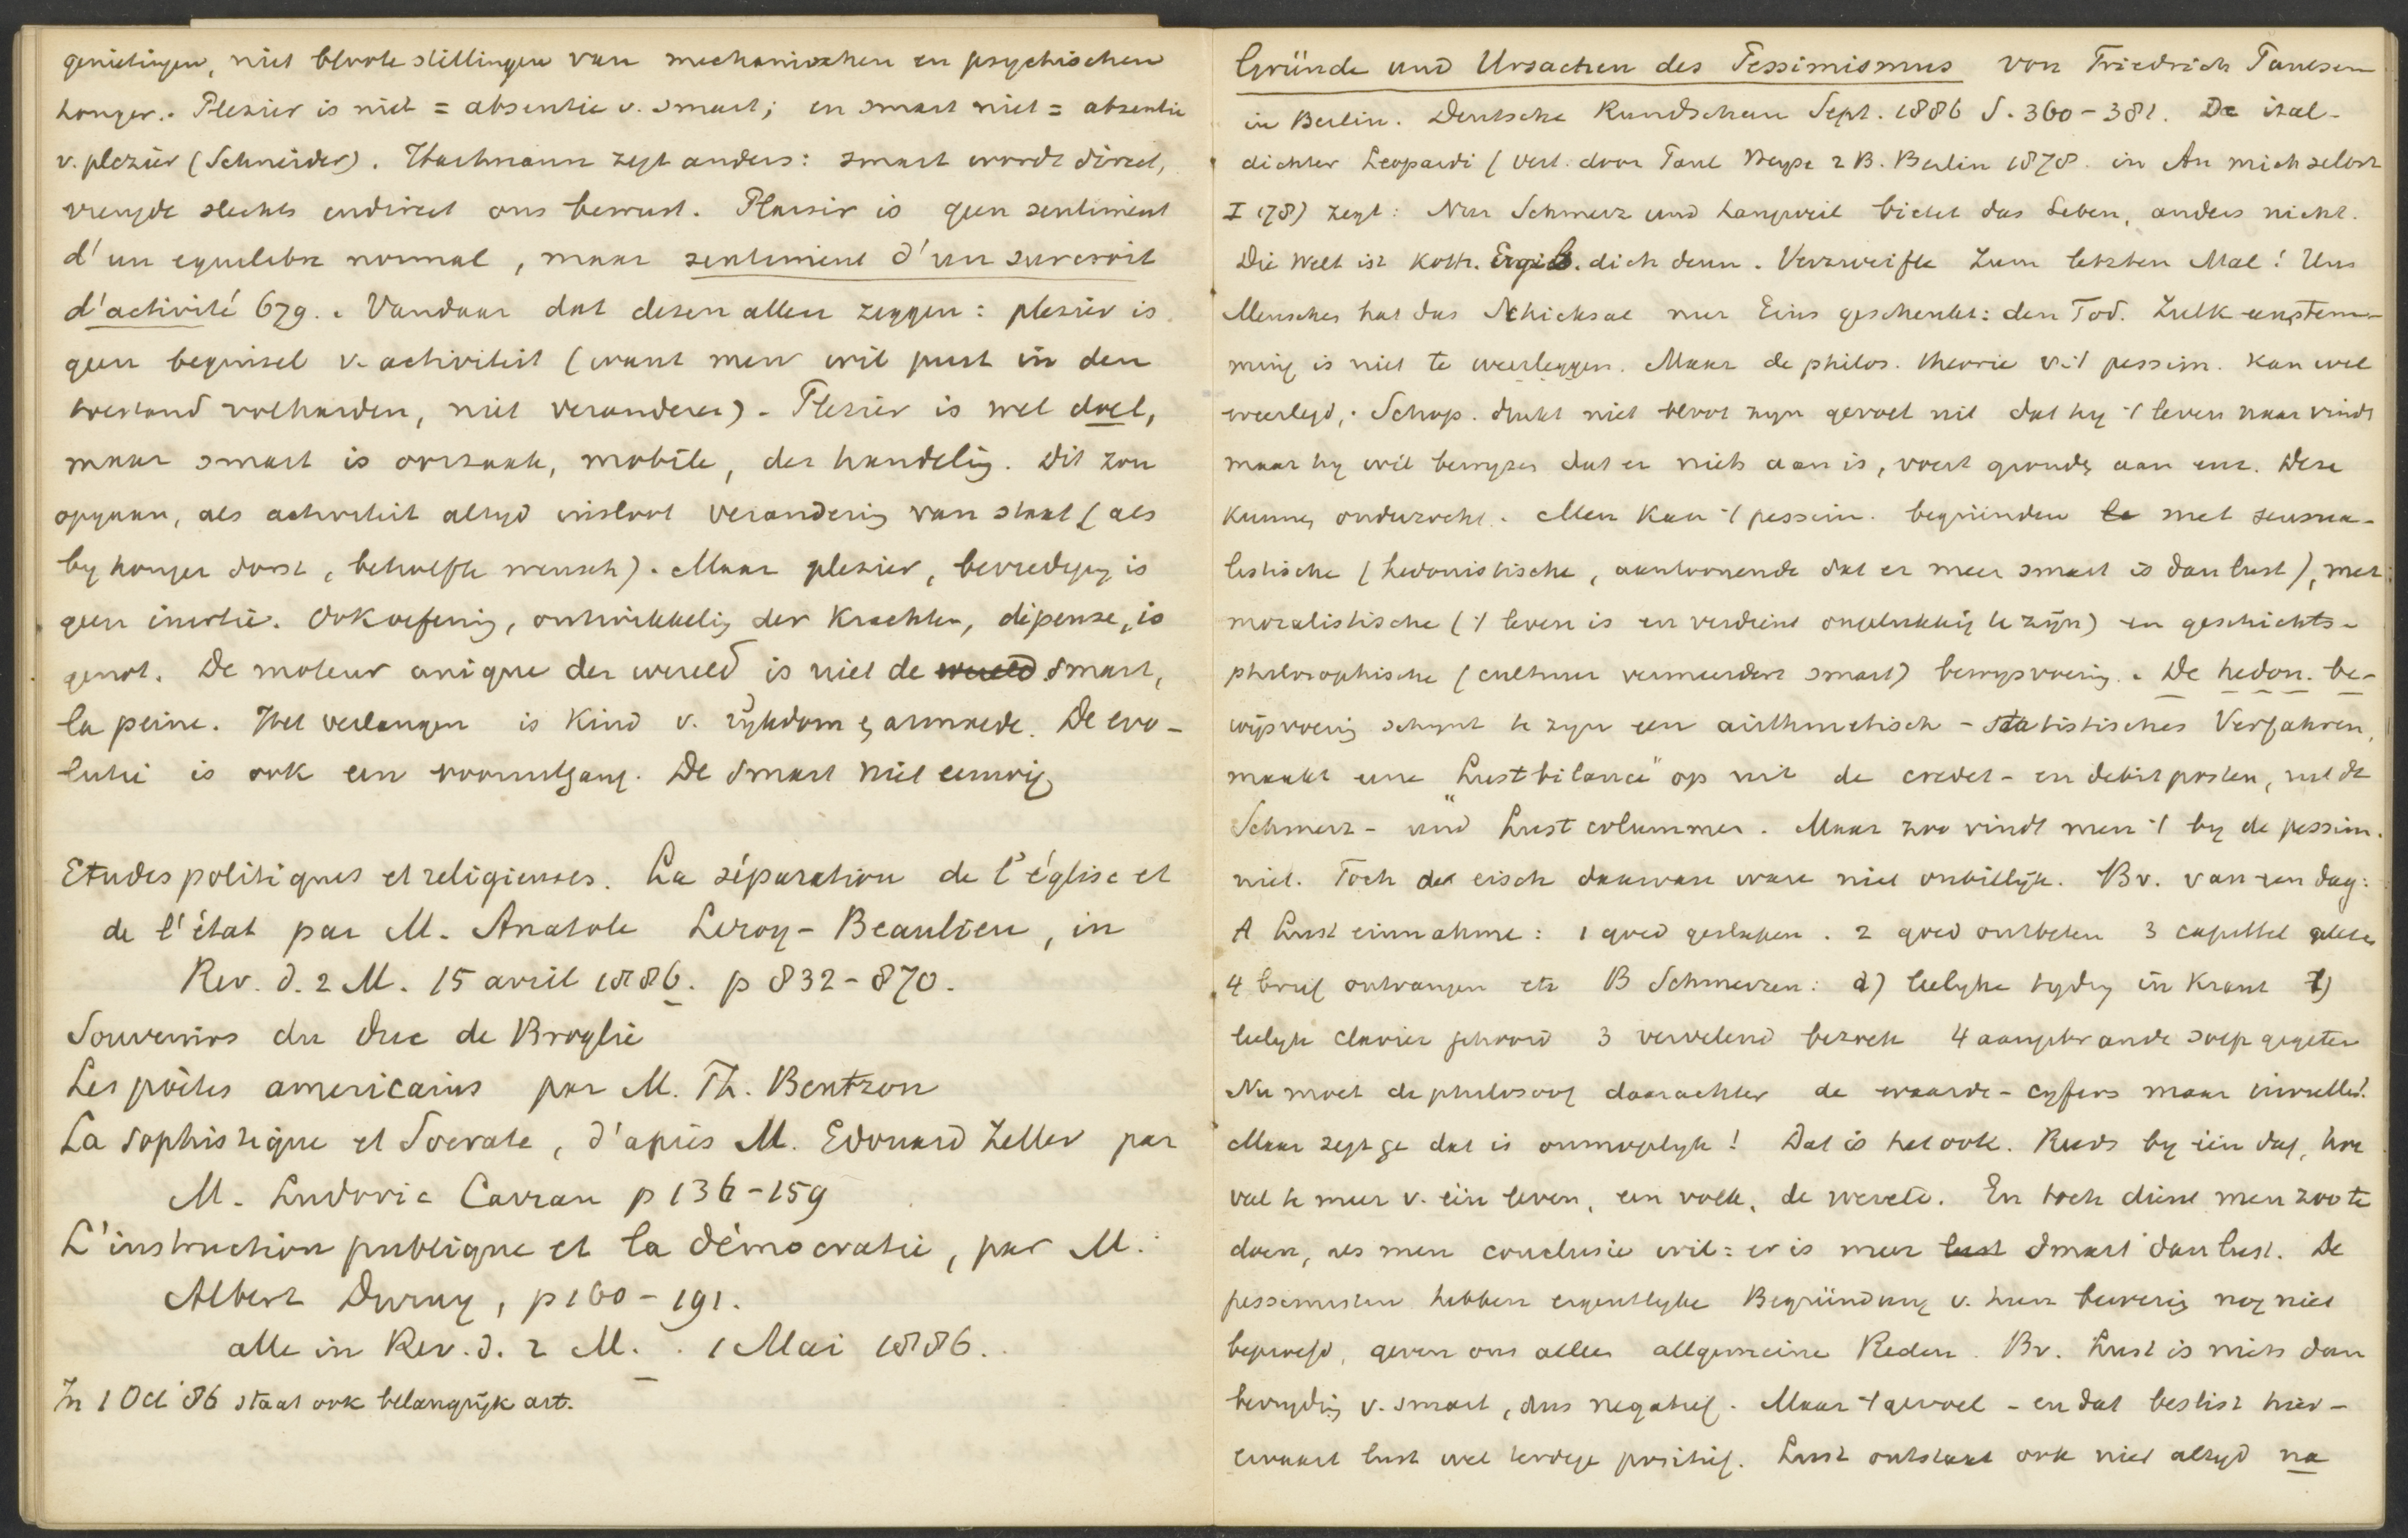 genietingen, niet bloote stillingen van mechanischen en psychischen
honger. Plezier is niet = absentie v. smart; en smart niet = absentie
v. plezier (Schneider). Hartmann zegt anders: smart wordt direct,
vreugde slechts indirect ons bewust. Plaisir is geen sentiment
d'un equilibre normal, maar sentiment d'un surcroit
d'activité 679. Vandaar dat dezen allen zeggen: plezier is
geen beginsel v. activiteit (want men wil juist in den
toestand volharden, niet veranderen) - Plezier is wel doel,
maar smart is oorzaak, mobile, der handelig. Dit zou
opgaan, als activiteit altyd insloot veranderig van staat (als
by honger dorst, behoefte mensch). Maar plezier, bevredigg is
geen inertie. Ook oefenig, ontwikkelig der krachten, dépense, is
genot. De moteur unique der wereld is niet de wereld smart,
la peine. Het verlangen is kind v. rijkdom & armoede. De evo-
lutie is ook een vooruitgang. De smart niet eeuwig
Etudes politiques et religieuses. La séparation de l'église et
de l'état par M. Anatole Leroy-Beaulieu, in
Rev. d. 2 M. 15 avril 1886. p 832-870.
Souvenirs du duc de Broglie
Les poètes americains par M. Th. Bentzon
La sophistique et Socrate, d'après M. Edouard Zeller par
M. Ludovic Carrau p 136-159
L'instruction publique et la démocratie, par M.
Albert Duruy, p 160-191.
alle in Rev. d. 2 M. 1 Mai 1886.
In 1 Oct '86 staat ook belangrijk art.
Gründe und Ursachen des Pessimismus von Friedrich Paulsen
in Berlin. Deutsche Rundschau Sept. 1886 S. 360-381. De ital-
dichter Leopardi (vert. door Paul Heyse 2 B. Berlin 1878. in An mich selbst
I 178) zegt: Nur Schmerz und Langweil bietet das Leben, anders nicht.
Die Welt ist Koth. Ergib dich denn. Verzweifle zum letzten Mal! Uns
Menschen hat das Schicksal nur Eins geschenkt: den Tod. Zulk een stem-
ming is niet te weerleggen. Maar de philos. theorie v. 't pessim. kan wel
weerlegd. Schop. drukt niet bloot zyn gevoel uit dat hy 't leven naar vindt
maar hy wil bewyzen dat er niets aan is, voert gronds aan enz. Deze
kunnen onderzocht. Men kan 't pessim. begründen le met sensua-
listische (hedonistische, aantoonende dat er meer smart is dan lust), met
moralistische ('t leven is en verdient ongelukkig te zijn) en geschichts-
philosophische (cultuur vermeerdert smart) bewysvoering. De hedon. be-
wijsvoerig schynt te zyn een arithmetisch - statistisches Verfahren,
maakt eene "Lustbilance" op uit de credet- en debitposten, uit de
"Schmerz- und Lust columnen. Maar zoo vindt men 't by de pessim.
niet. Toch de eisch daarvan ware niet onbillijk. Bv. van een dag:
A Lust einnahme: 1 goed geslapen. 2 goed ontbeten 3 capittel gelezen
4 brief ontvangen etc B Schmerzen: 1) leelyke tydig in krant 2)
leelyk clavier gehoord 3 vervelend bezoek 4 aangebrande soep gegeten
Nu moet de philosoof daarachter de waarde-cyfers maar invullen!
Maar zegt ge dat is onmogelyk! Dat is het ook. Reeds by één dag, hoe
veel te meer v. één leven, een volk, de wereld. En toch dient men zoo te
doen, als men conclusie wil: er is meer lust smart dan lust. De
pessimisten hebben eigentlyke Begründung v. hun bewerig nog niet
beproefd, geven ons alleen allgemeine Reden. Bv. Lust is niets dan
bevrydig v. smart, dus negatief. Maar 't gevoel - en dat beslist hier -
ervaart lust wel terdege positief. Lust ontstaat ook niet altyd na